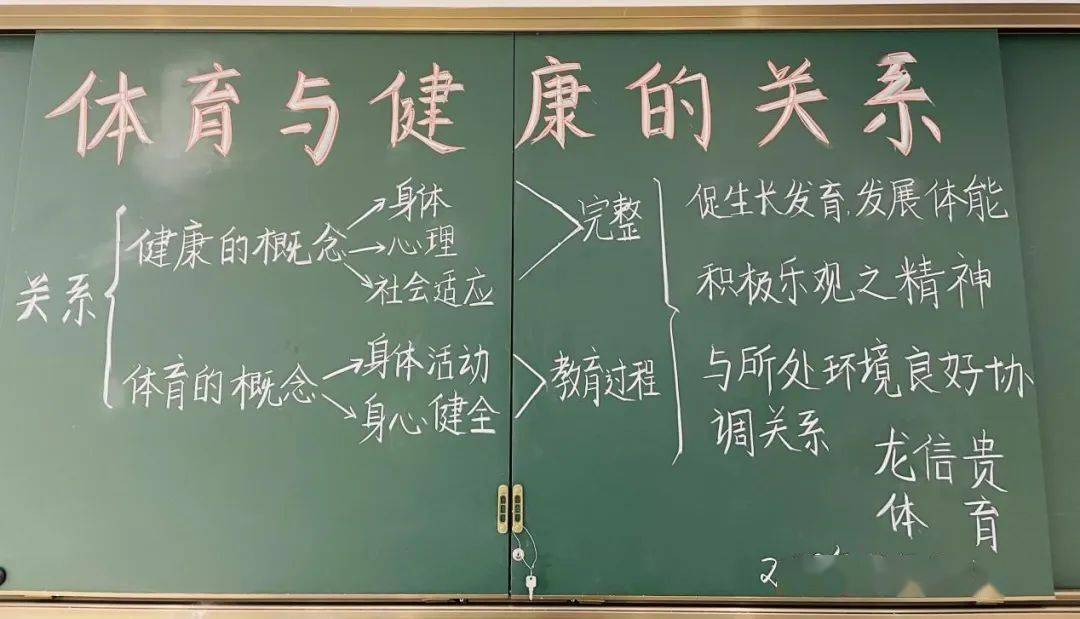 体育与健康的关系
关系
健康的概念
身体
心理
社会适应
完整
体育的概念
身体活动
身心健全
教育过程
促生长发育、发展体能
积极乐观之精神
与所处环境良好协
调关系
龙信贵
体育
2